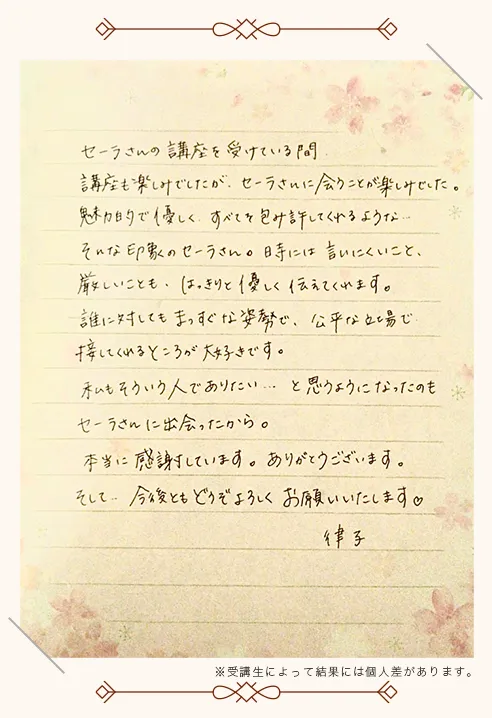 セーラさんの講座を受けている間
講座も楽しみでしたが、セーラさんに会うことが楽しみでした。
魅力的で優しく、すべてを包み許してくれるような…
そんな印象のセーラさん。時には言いにくいこと、
厳しいことも、はっきりと優しく伝えてくれます。
誰に対してもまっすぐな姿勢で、公平な立場で
接してくれるところが大好きです。
私もそういう人でありたい… と思うようになったのも
セーラさんに出会ったから。
本当に感謝しています。ありがとうございます。
そして… 今後ともどうぞよろしくお願いいたします♡
律子
※受講生によって結果には個人差があります。